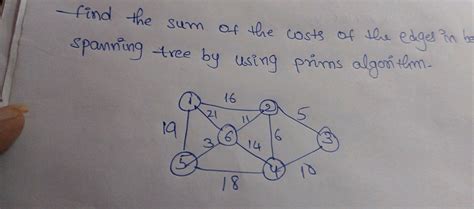 find the sum of the costs of the edges in be
spanning tree by using prims algorithm.
1 16 2 5
21 11
19 6 6 3
3 14
5 4 10
18